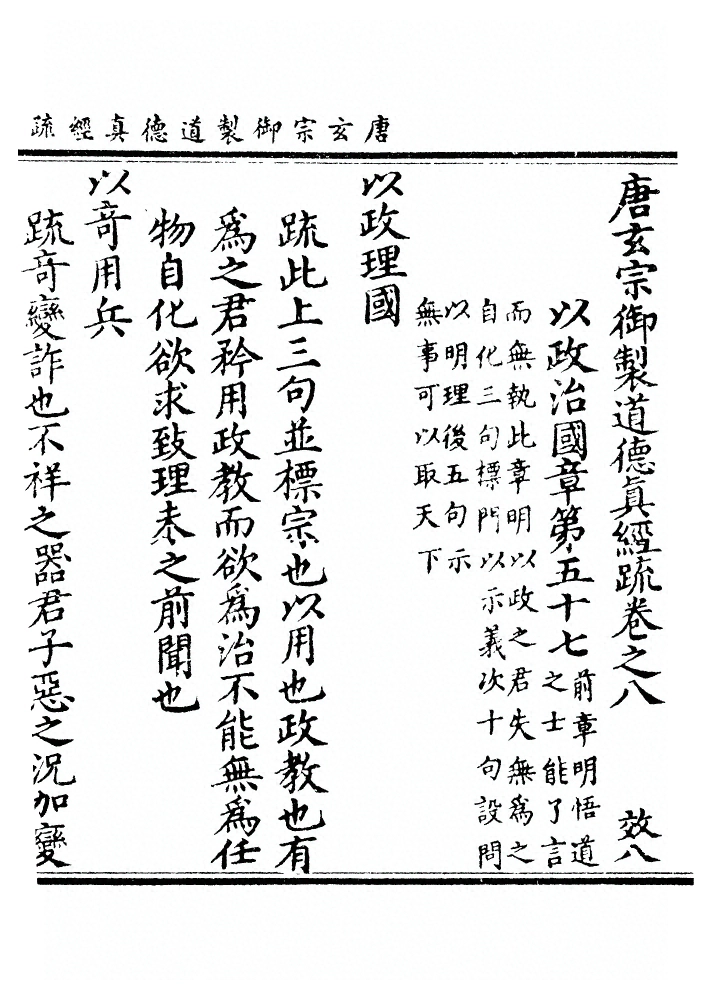 唐玄宗御製道德真經疏
唐玄宗御製道德真經疏卷之八 效八
以政治國章第五十七
前章明悟道
之士能了言
而無執此章明以政之君失無為之
自化三句標門以示義次十句設問
以明理後五句示
無事可以取天下
以政理國
疏此上三句並標宗也以用也政教也有
為之君矜用政教而欲為治不能無為任
物自化欲求致理未之前聞也
以奇用兵
疏奇變詐也不祥之器君子惡之況加變